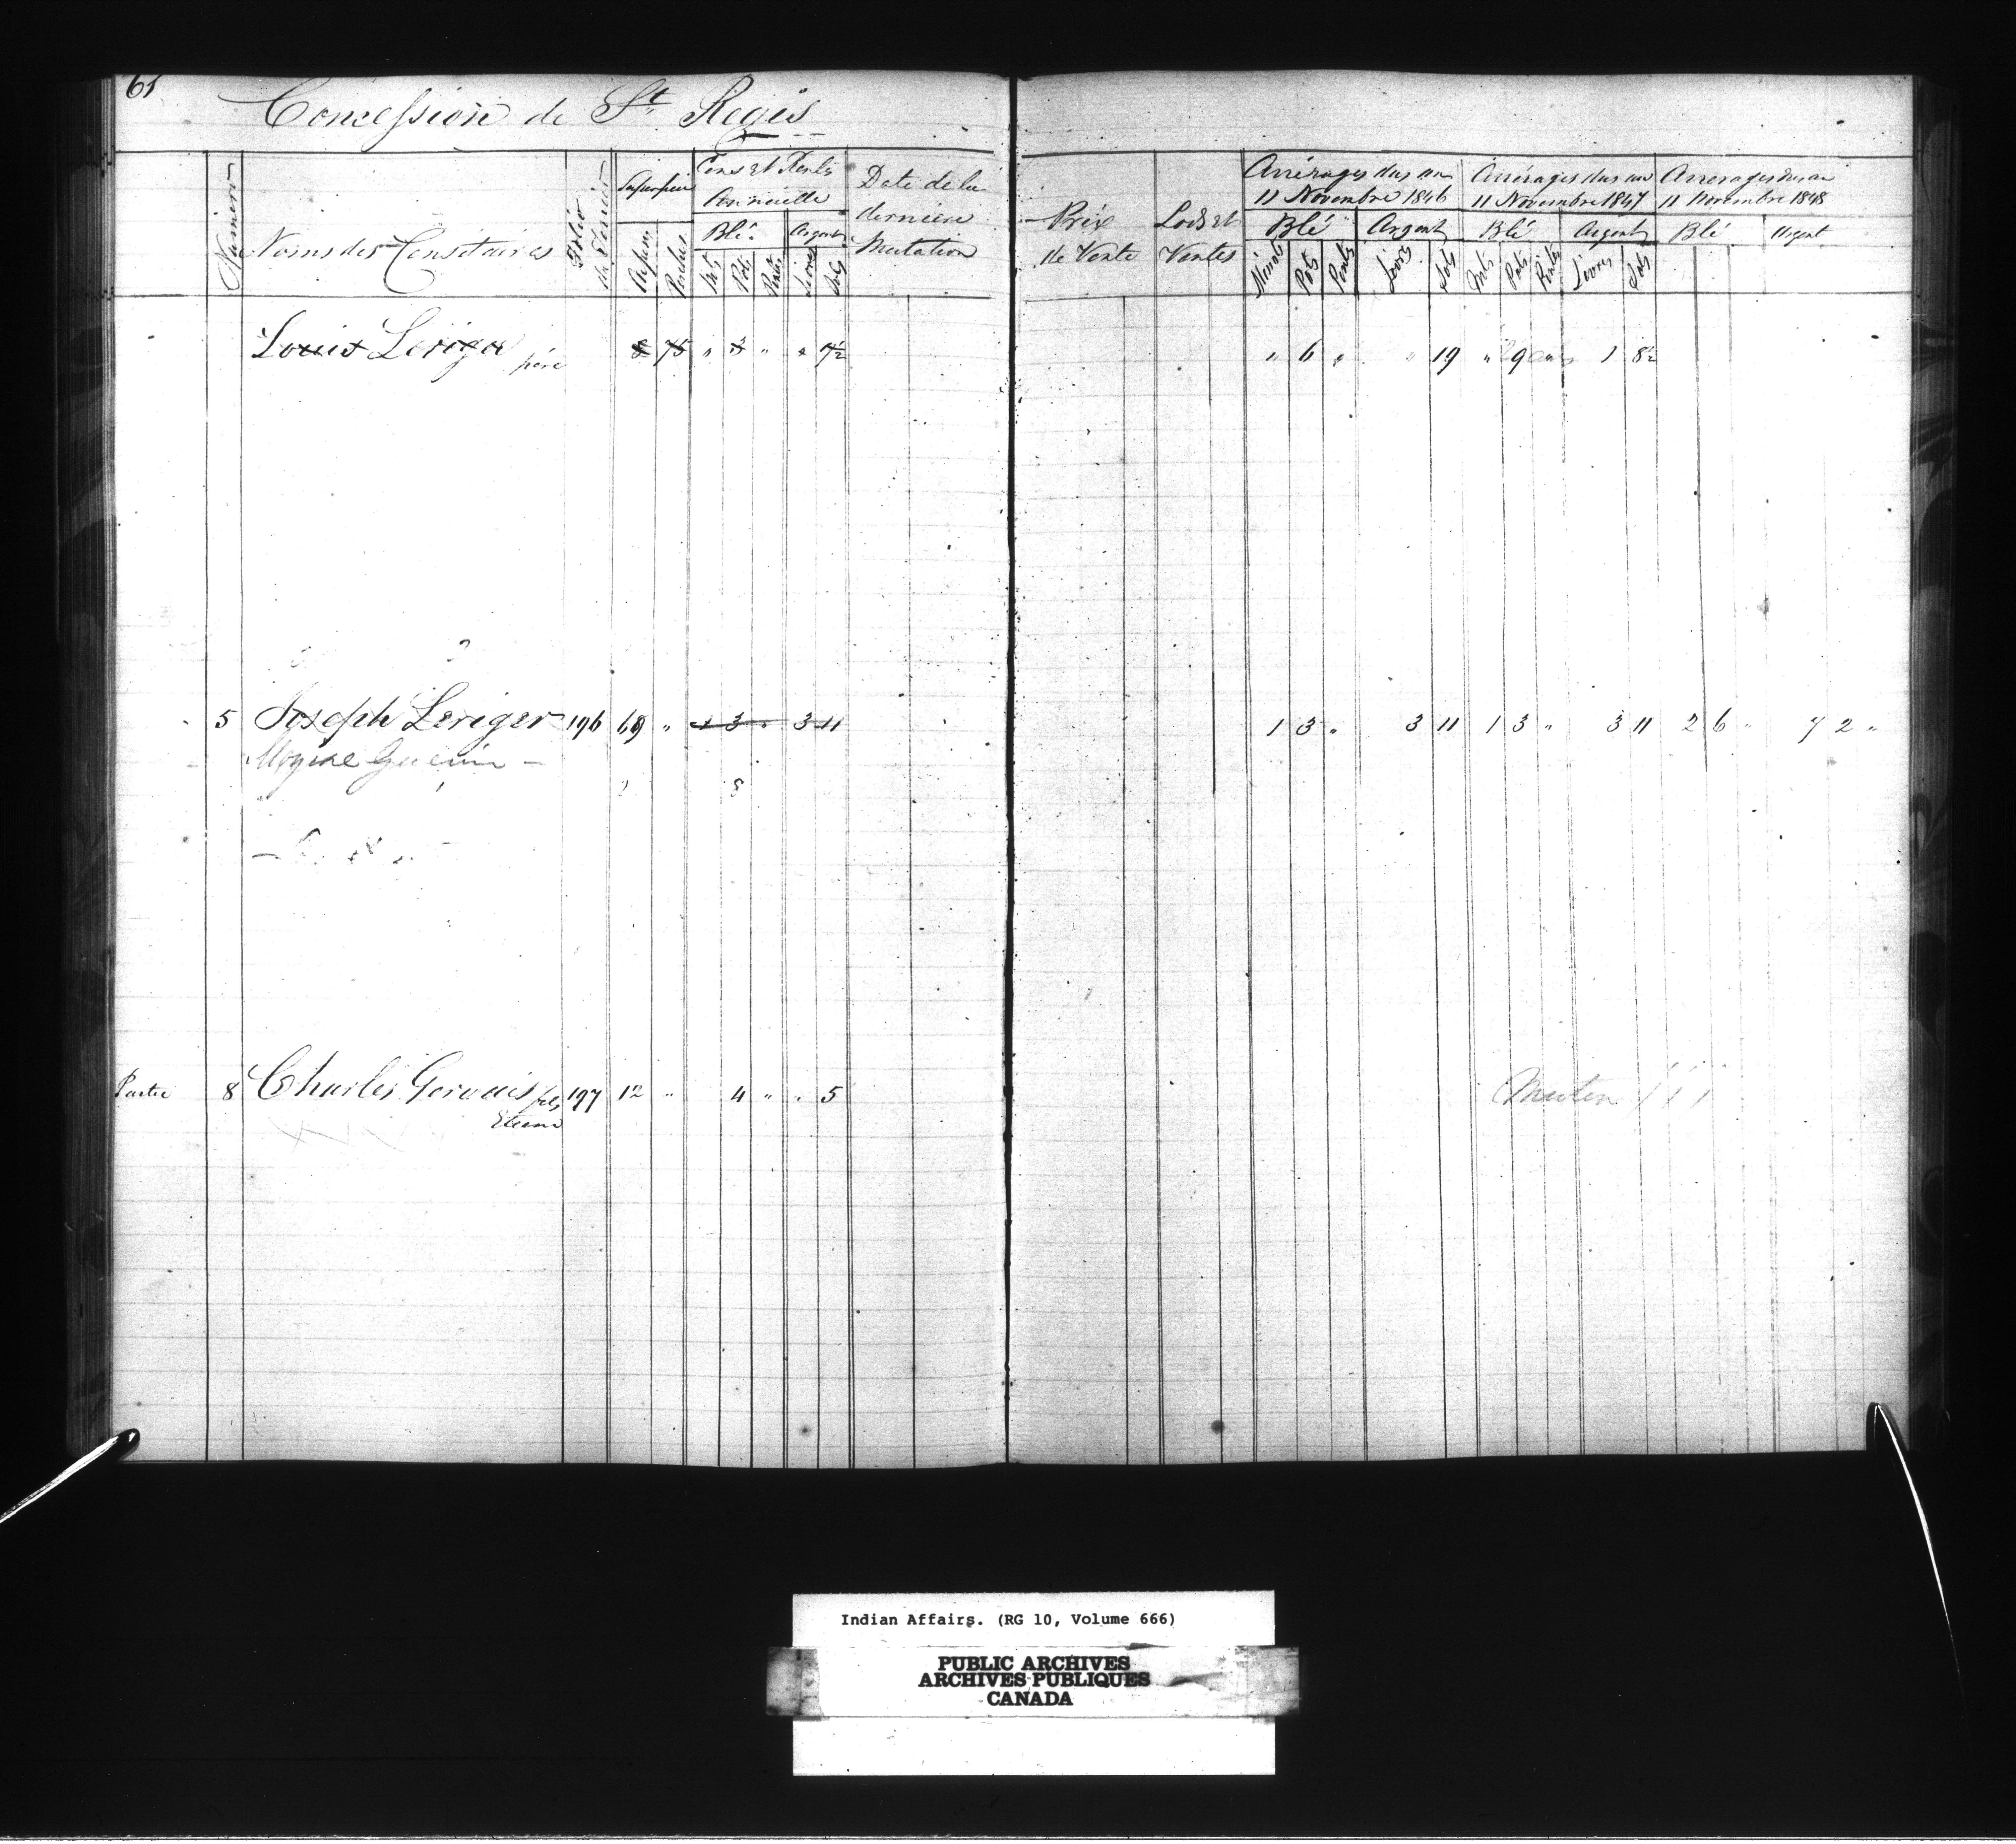 61
Concession de St Regis
Numéro
Noms des Censitaires
Folio du Terrier
Superficie
Arpens
Perches
Cens et Rente Annuelle
Blé
Argent
Mts
Pots
Pintes
Livres
Sols
Date de la dernière Mutation
Prix de Vente
Lods et Ventes
Arrérages dus au 11 Novembre 1846
Blé
Argent
Minots
Pots
Pintes
Livres
Sols
Arrérages dus au 11 Novembre 1847
Blé
Argent
Mts
Pots
Pintes
Livres
Sols
Arrerages dus au 11 Novembre 1848
Blé
Argent
Louis Leriger père 8 75 " 3 " " 7½ " 6 " " 19 " 9 1 8½
5 Joseph Leriger 196 69 " 1 3 " 3 11 1 3 " 3 11 1 3 " 3 11 2 6 " 7 2 "
Moyse Guerin -
8
Partie 8 Charles Gervais fils 197 12 " 4 " " 5
Etienne
Indian Affairs. (RG 10, Volume 666)
PUBLIC ARCHIVES
ARCHIVES PUBLIQUES
CANADA